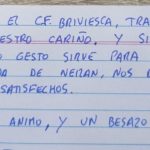 EL C.F. BRIVIESCA, TRA
ESTRO CARIÑO, Y SI
O GESTO SIRVE PARA
DA DE NEIZAN, NOS D
SATISFECHOS.
ANIMO, Y UN BESAZO